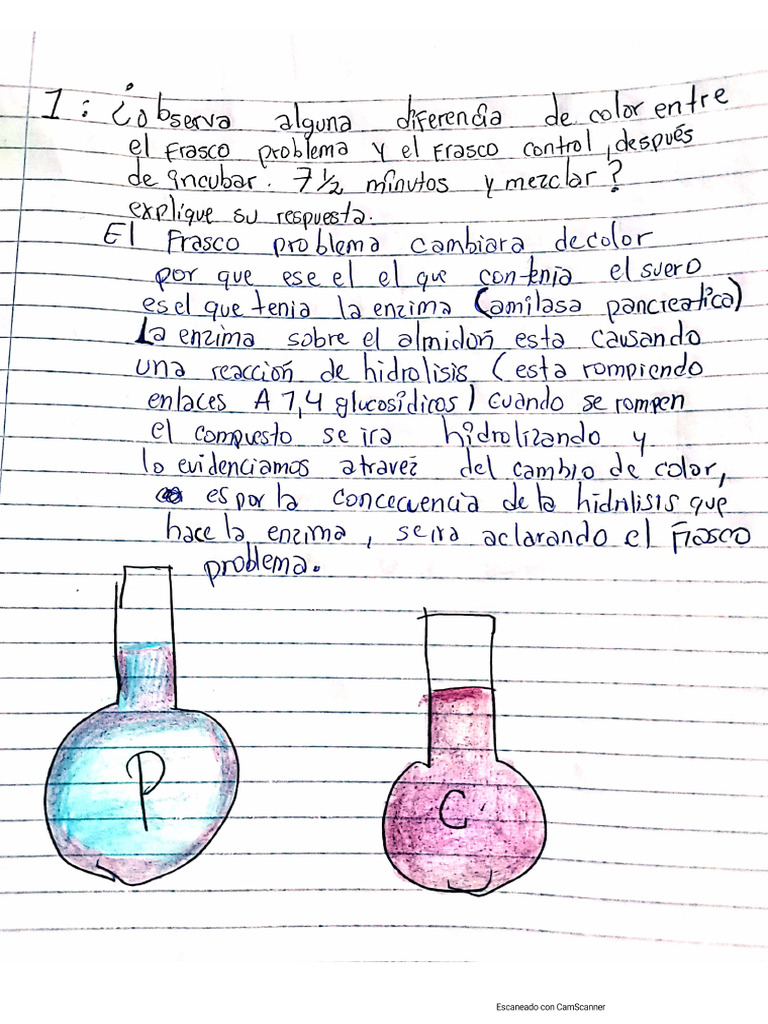 1: ¿observa alguna diferencia de color entre
el frasco problema y el frasco control, después
de incubar. 7 1/2 minutos y mezclar?
explique su respuesta.
El frasco problema cambiara de color
por que ese el el que contenia el suero
es el que tenia la enzima (amilasa pancreatica)
La enzima sobre el almidoń esta causando
una reaccioń de hidrolisis (esta rompiendo
enlaces A 1,4 glucosídicos) cuando se rompen
el compuesto se ira hidrolizando y
lo evidenciamos atravez del cambio de color,
es por la concecuencia de la hidrilisis que
hace la enzima, se ira aclarando el Frasco
problema.
P
C
Escaneado con CamScanner